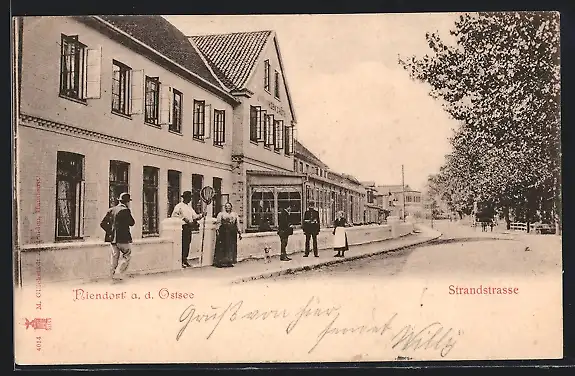 Niendorf a. d. Ostsee
Strandstrasse
Gruß von hier
sendet Willy
4014 M. Glückstadt & Münden, Hamburg.